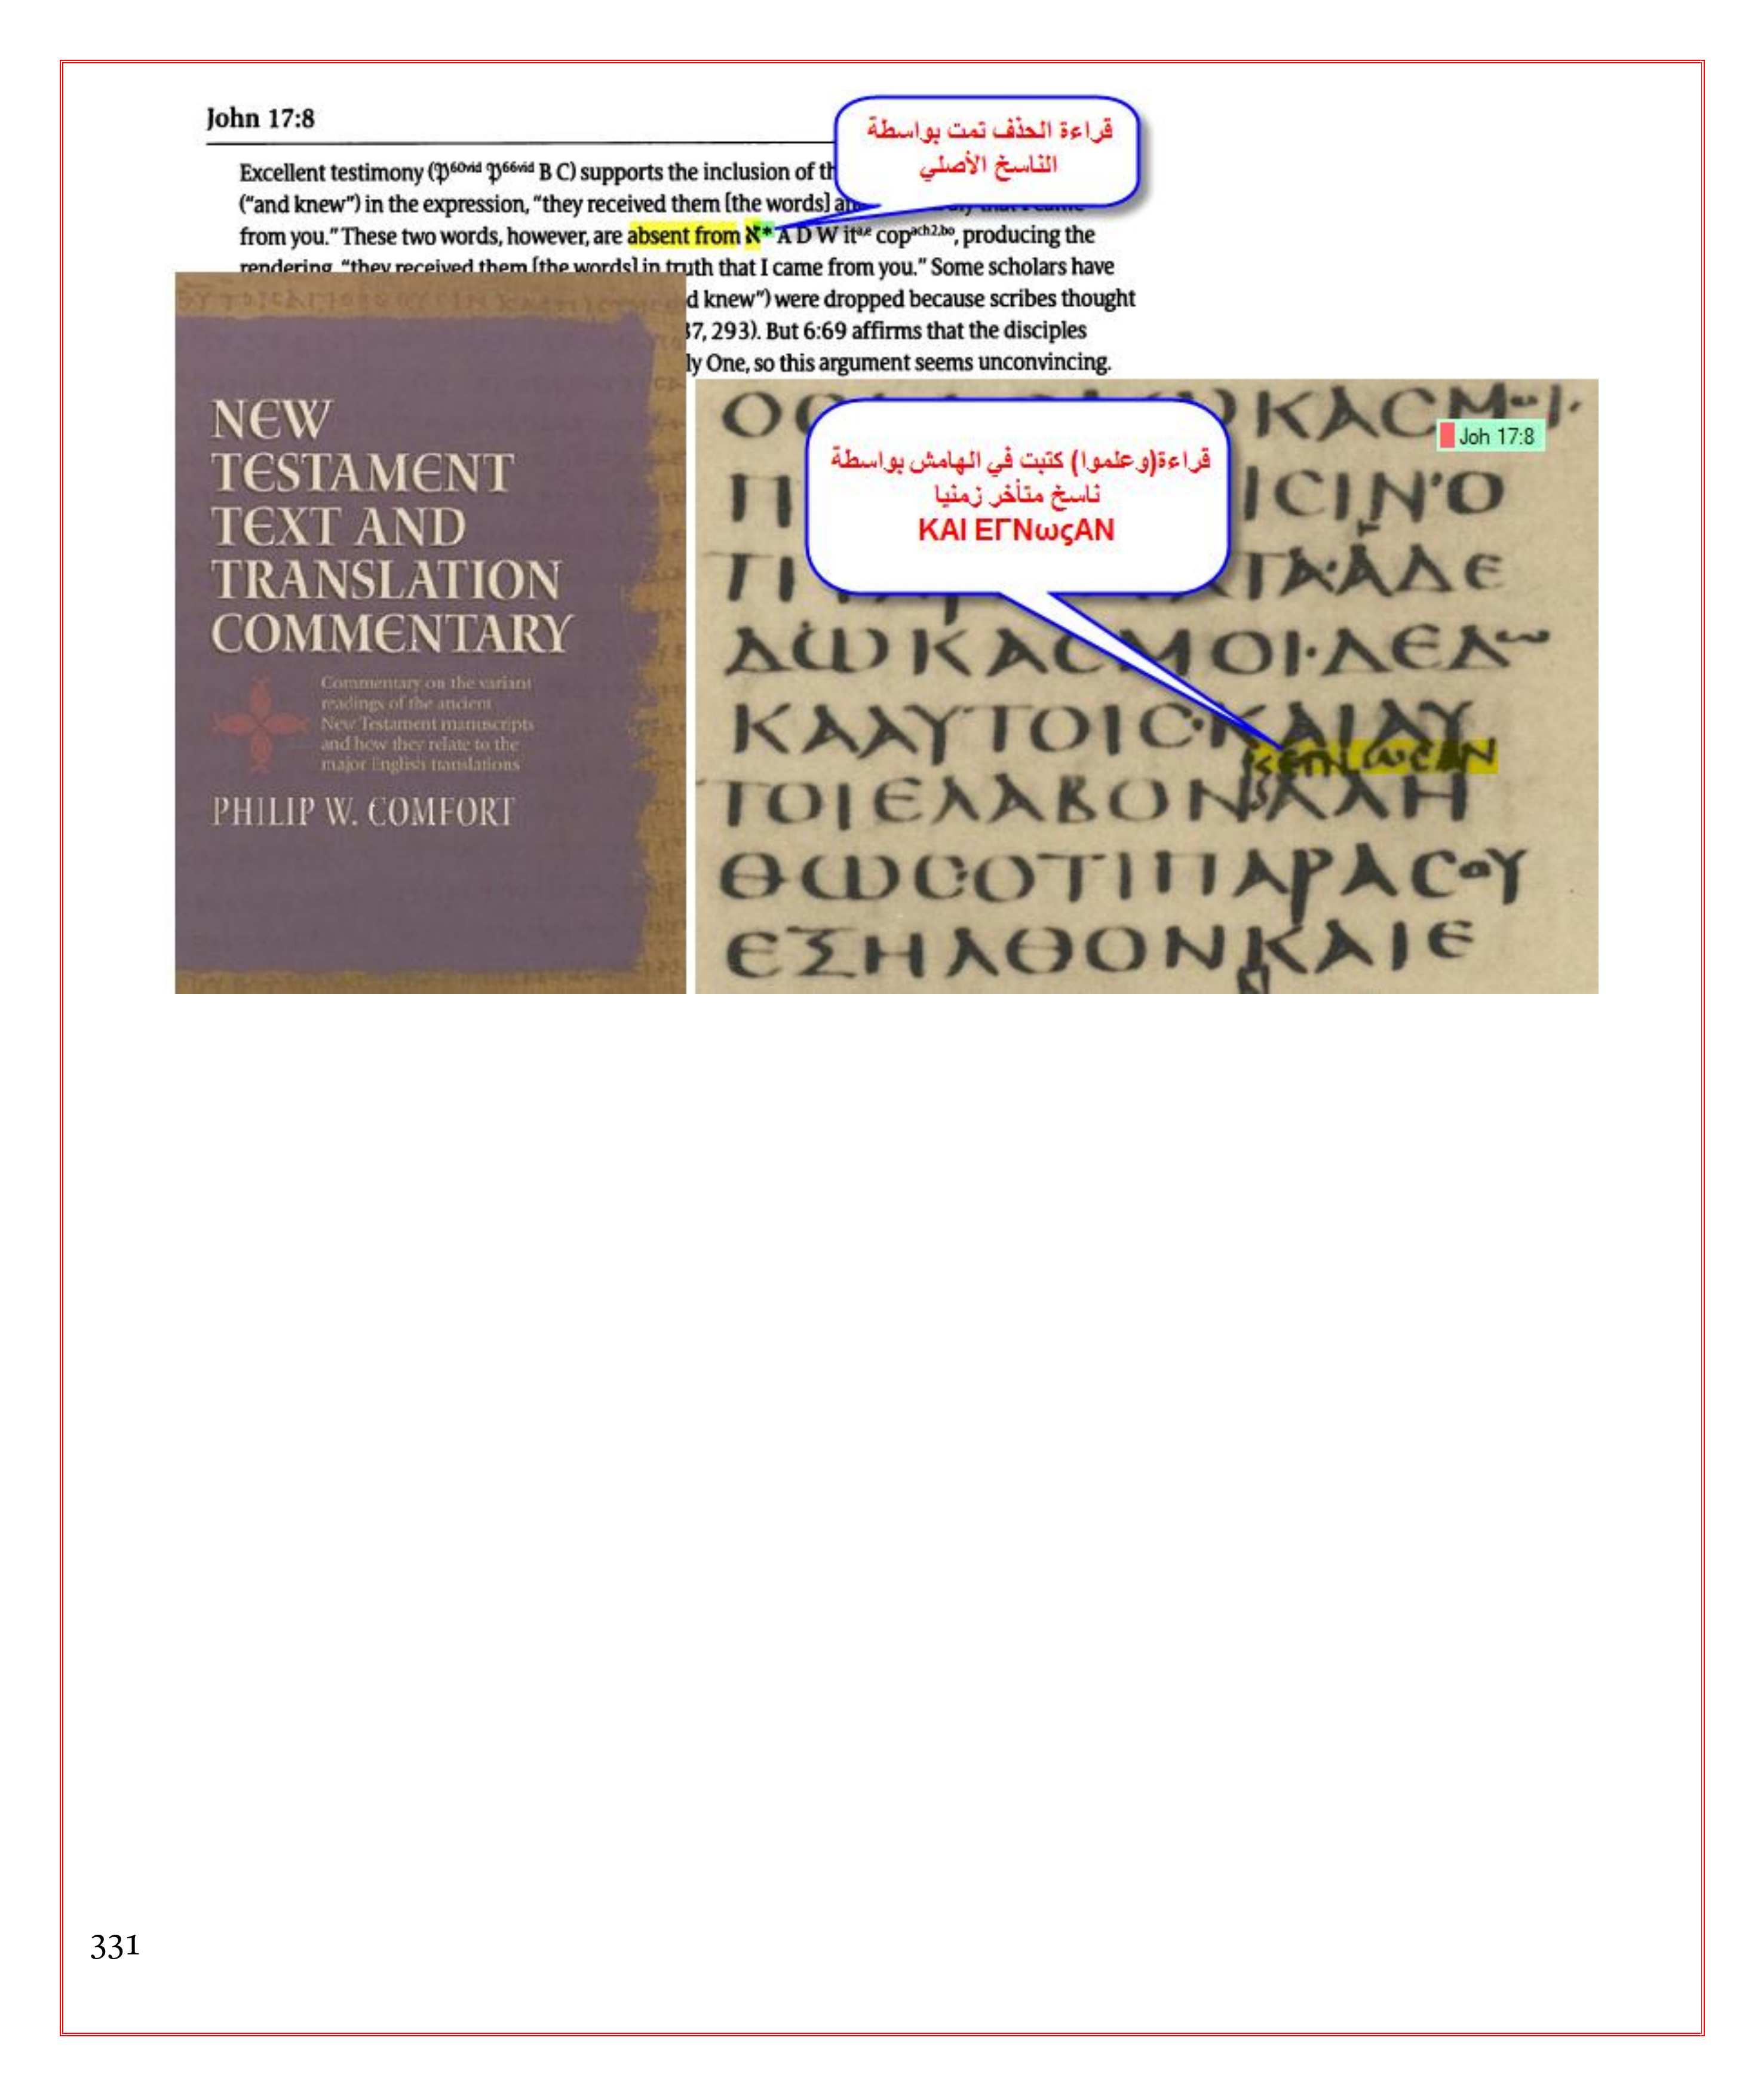 John 17:8
قراءة الحذف تمت بواسطة
الناسخ الأصلي
Excellent testimony (𝔓60vid 𝔓66vid B C) supports the inclusion of
("and knew") in the expression, "they received them [the words]
from you." These two words, however, are absent from ℵ* A D W ita,e copach2,bo, producing the
rendering, "they received them [the words] in truth that I came from you." Some scholars have
d knew") were dropped because scribes thought
37, 293). But 6:69 affirms that the disciples
ly One, so this argument seems unconvincing.
NEW
TESTAMENT
TEXT AND
TRANSLATION
COMMENTARY
Commentary on the variant
readings of the ancient
New Testament manuscripts
and how they relate to the
major English translations
PHILIP W. COMFORT
قراءة(وعلموا) كتبت في الهامش بواسطة
ناسخ متأخر زمنيا
ΚΑΙ ΕΓΝωςΑΝ
Joh 17:8
ΚΑϹΜΟΙ·
ΙϹΙΝΟ
ΤΑΑΔΕ
ΔΩΚΑϹΜΟΙ·ΔΕΔΩ
ΚΑΑΥΤΟΙϹ·ΚΑΙΑΥ
ΤΟΙΕΛΑΒΟΝΑΛΗ
ΘΩϹΟΤΙΠΑΡΑϹΟΥ
ΕΞΗΛΘΟΝΚΑΙΕ
331